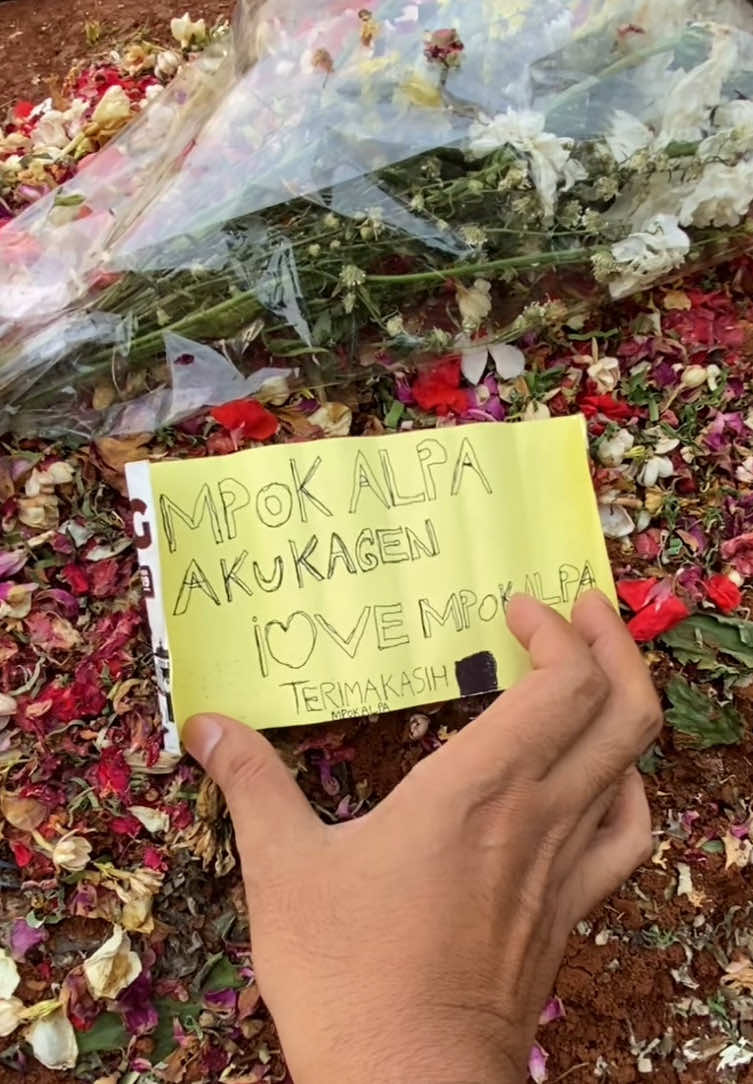 MPOK ALPA
AKUKAGEN
iOVE MPOK ALPA
TERIMAKASIH
MPOK ALPA